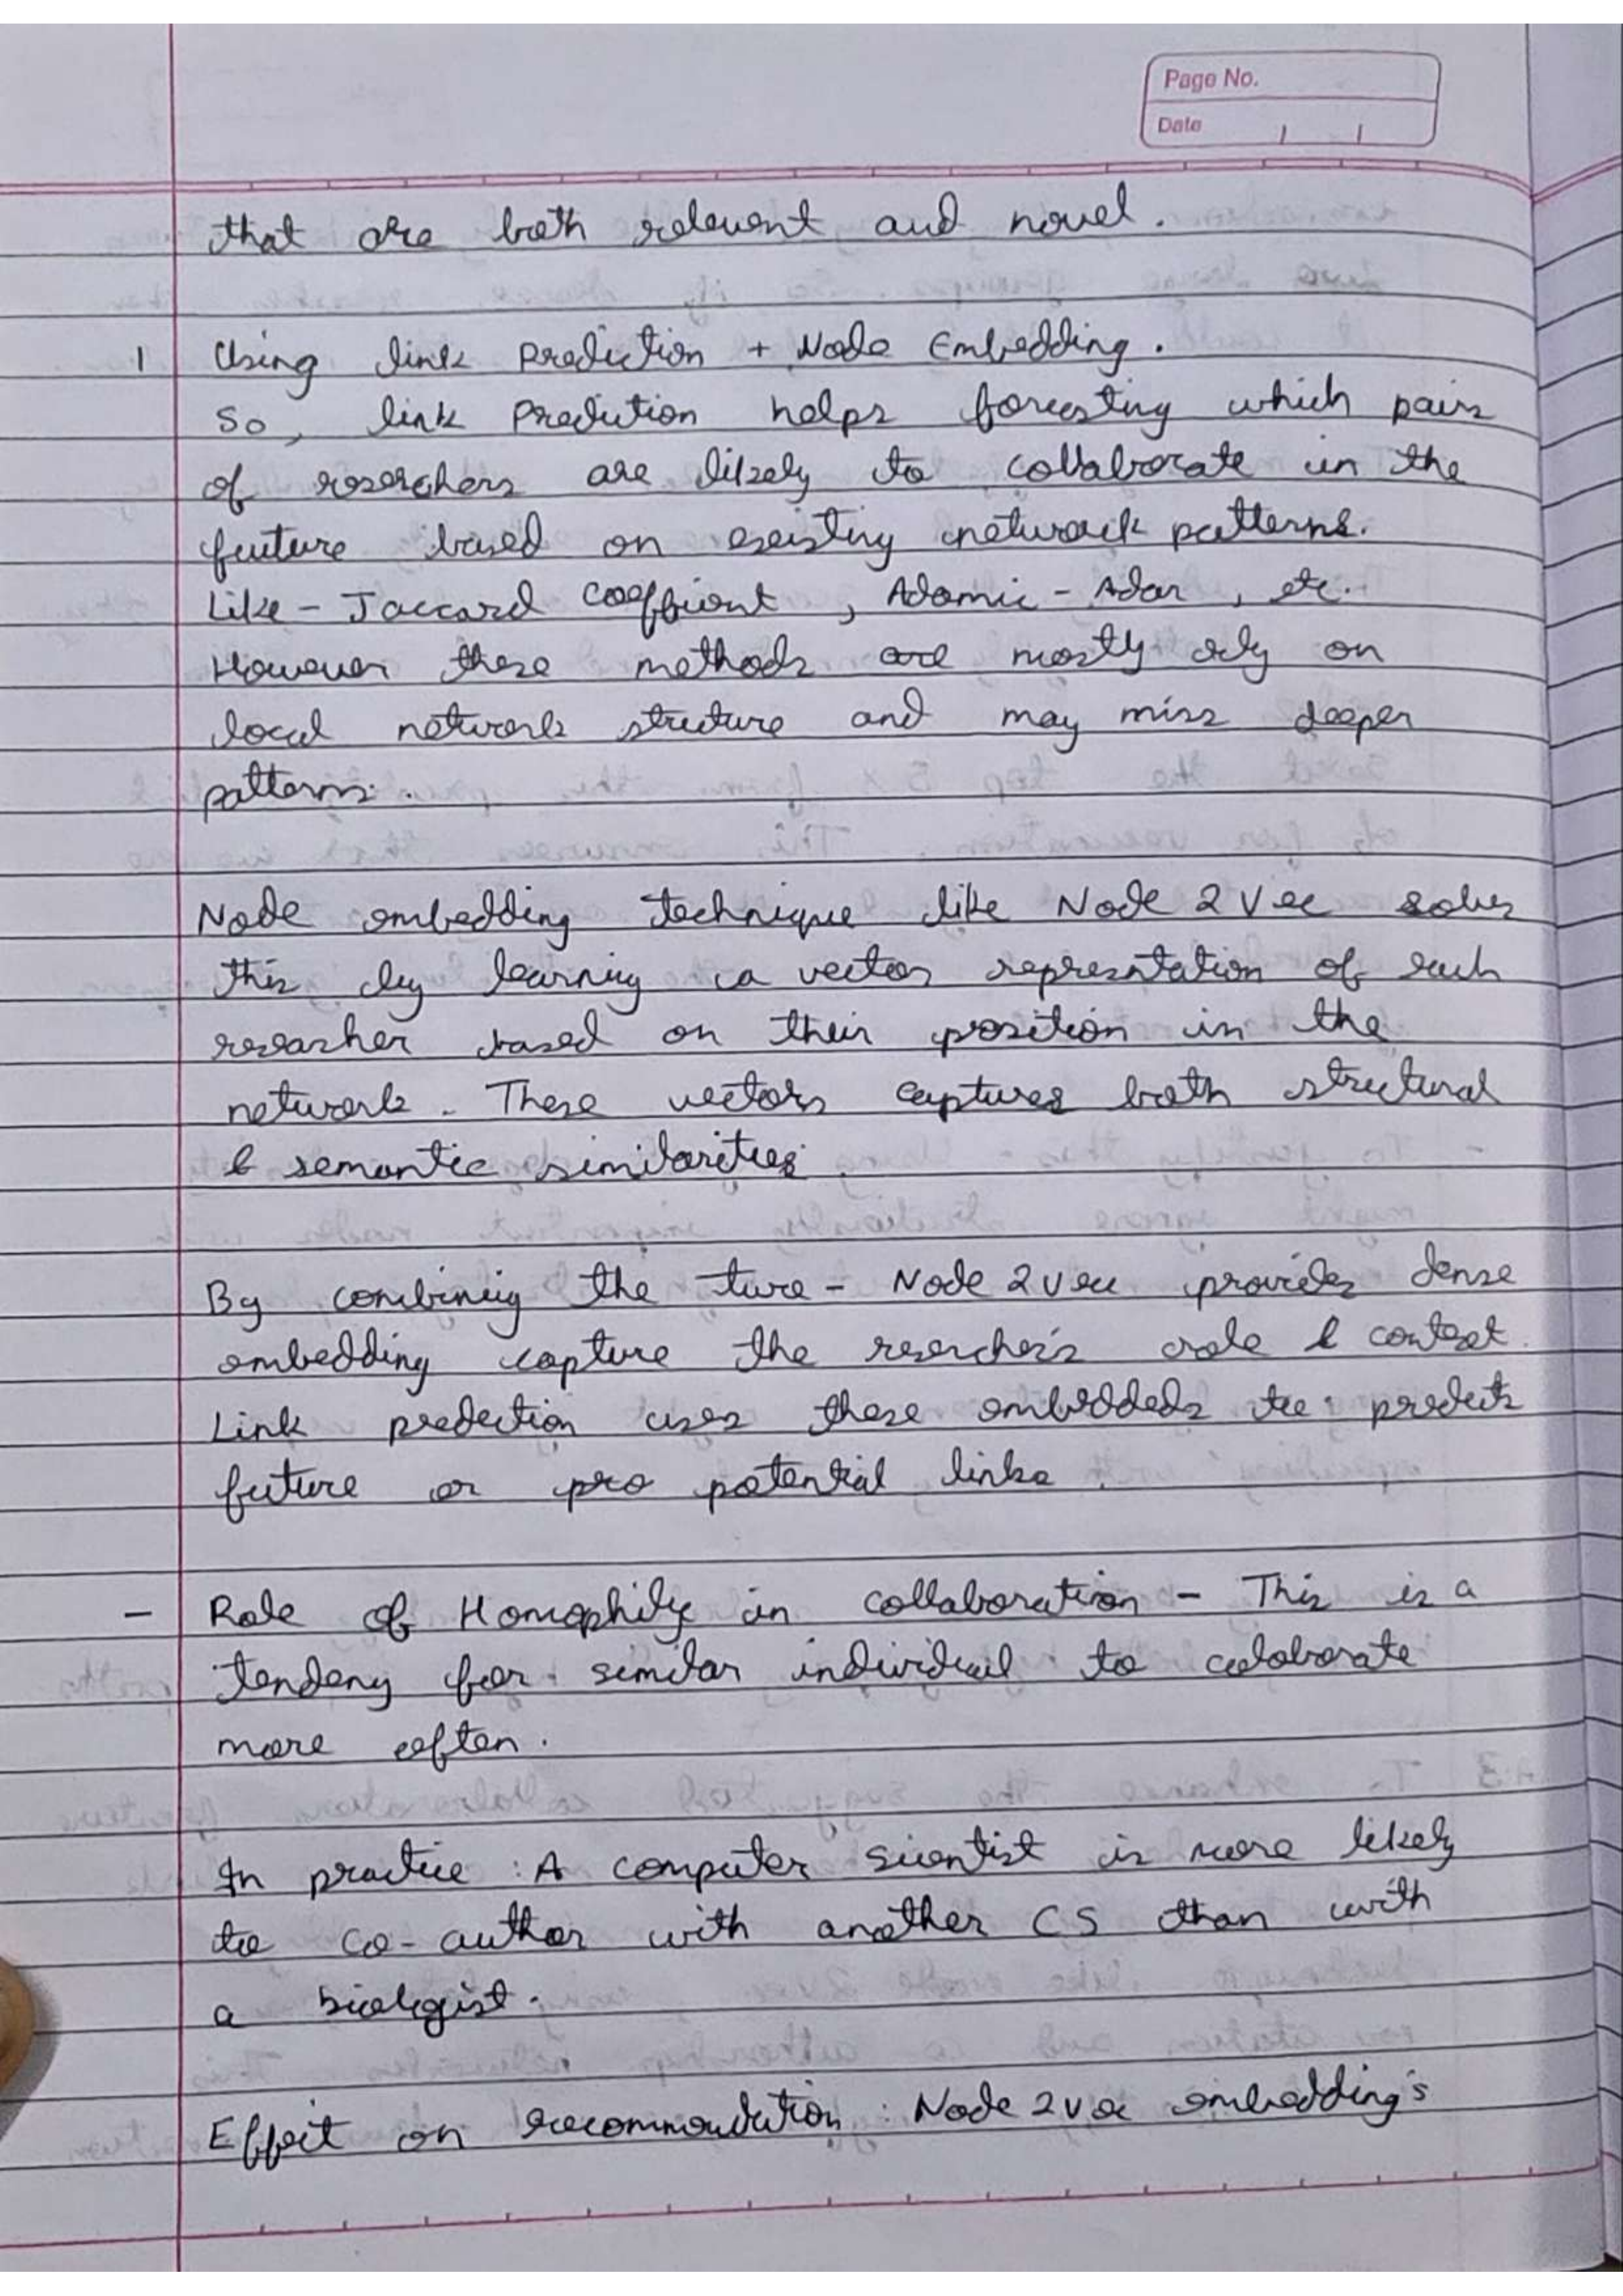 Page No.
Date / /
that are both relevent and novel.
1 Using link Prediction + Node Embedding.
So, link Prediution helps forcesting which pairs
of reserchers are likely to collaborate in the
future based on exsisting network patterns.
Like - Jaccard Coeffiient, Adamic - Adar, etc.
However these methods are mostly rely on
local network structure and may miss deeper
patterns.
Node embedding technique like Node 2 Vec solves
this by learning a vector represntation of each
researher based on their position in the
network. These vectors captures both structural
& semantic similarities.
By combining the two - Node 2 vec provides dense
embedding capture the reserchers role & context.
Link predection uses these embeddeds to predicts
future or pro potential links.
- Role of Homophily in collaboration - This is a
tendeny for similar individual to colaborate
more often.
In practice : A computer scientist is more likely
to co-author with another CS than with
a biologist.
Effect on recommendation : Node 2 vec embedding's